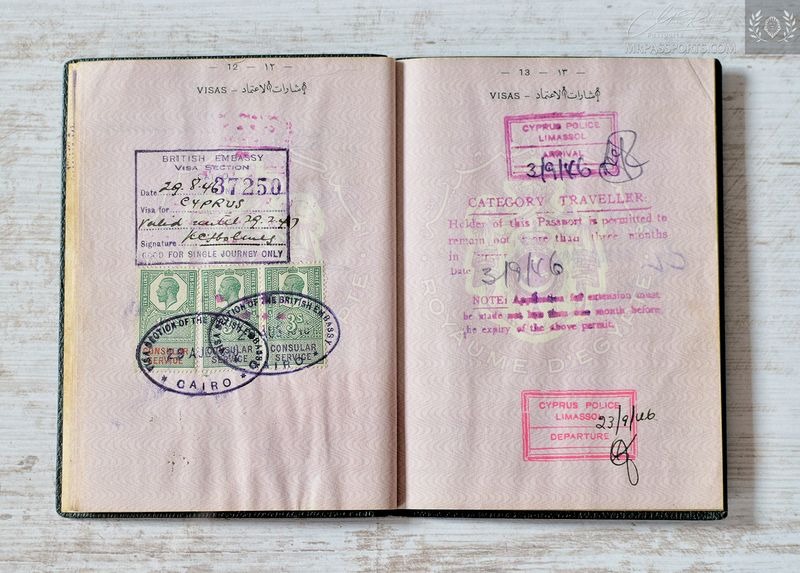 MRPASSPORTS.COM
— 12 — ١٢ —
VISAS — تأشيرات الاعتماد
BRITISH EMBASSY
VISA SECTION
Date 29.8.46 37250
Visa for CYPRUS
Valid until 29.2.47
Signature
GOOD FOR SINGLE JOURNEY ONLY
3s
CONSULAR SERVICE
CONSULAR SERVICE
CONSULAR SERVICE
VISA SECTION OF THE BRITISH EMBASSY
29 AUG
CAIRO
VISA SECTION OF THE BRITISH EMBASSY
CAIRO
— 13 — ١٣ —
VISAS — تأشيرات الاعتماد
CYPRUS POLICE
LIMASSOL
ARRIVAL
3/9/46
CATEGORY TRAVELLER.
Holder of this Passport is permitted to
remain not more than three months
in Cyprus.
Date 3/9/46
NOTE: Application for extension must
be made not less than one month before
the expiry of the above permit.
ROYAUME D'EGYPTE
CYPRUS POLICE
LIMASSOL
23/9/46
DEPARTURE